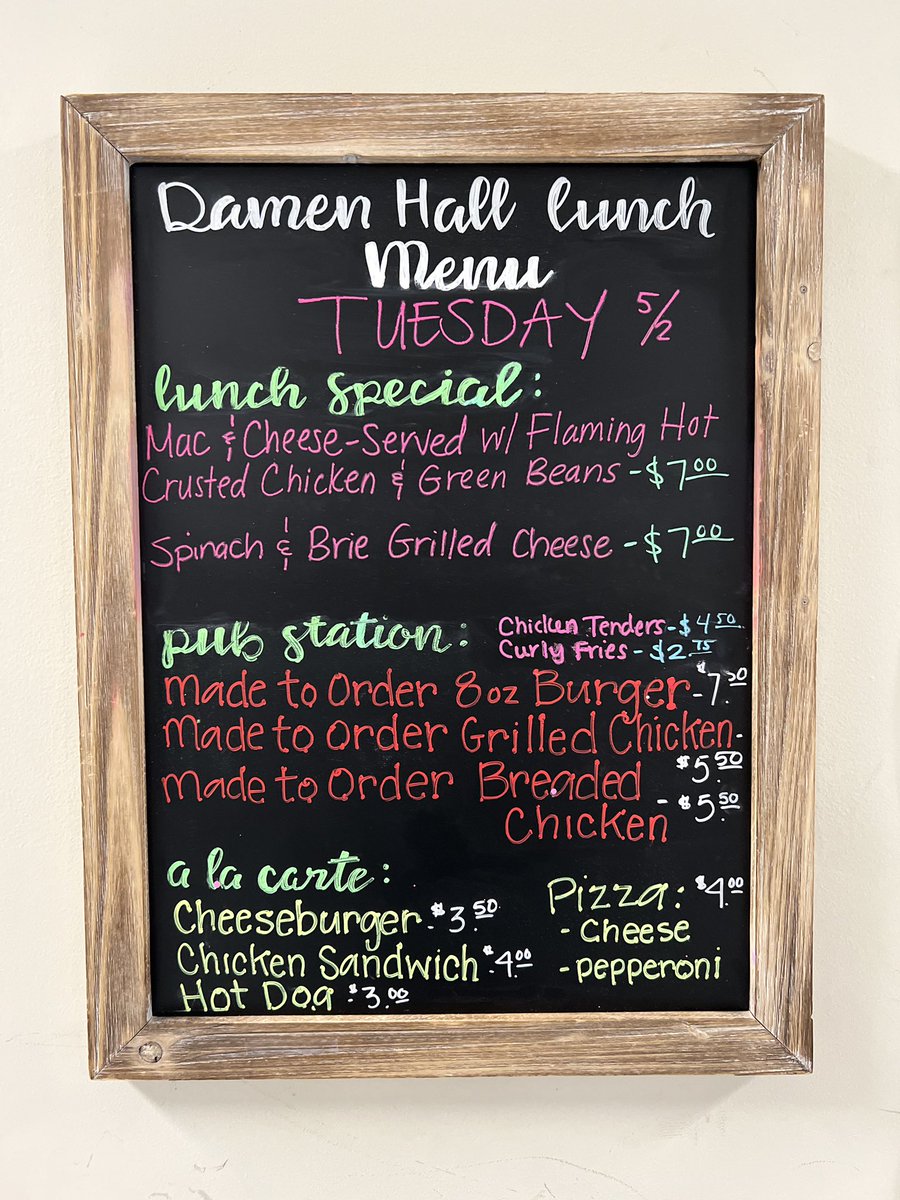 Damen Hall lunch
Menu
TUESDAY 5/2
lunch special:
Mac & Cheese-Served w/ Flaming Hot
Crusted Chicken & Green Beans - $7.00
Spinach & Brie Grilled Cheese - $7.00
pub station:
Chicken Tenders - $4.50
Curly Fries - $2.75
Made to Order 8oz Burger - $7.50
Made to Order Grilled Chicken - $5.50
Made to Order Breaded
Chicken - $5.50
a la carte:
Cheeseburger $3.50
Chicken Sandwich $4.00
Hot Dog $3.00
Pizza: $4.00
- Cheese
- pepperoni